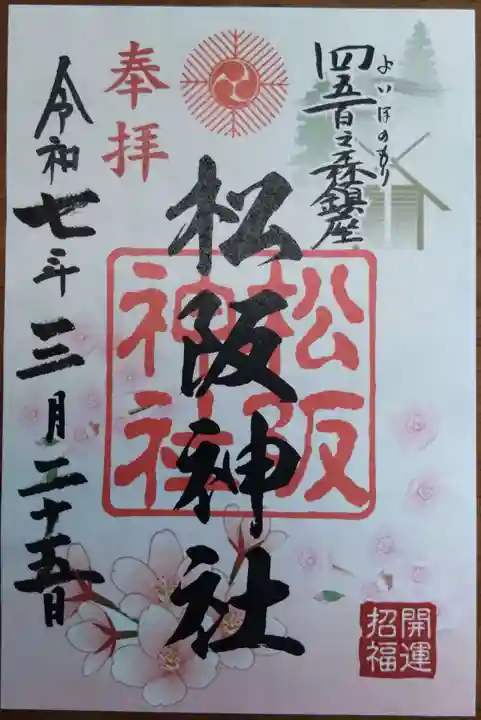 四五百之森鎮座
よいほのもり
松阪神社
松阪
神社
奉拝
令和七年三月二十五日
開運
招福